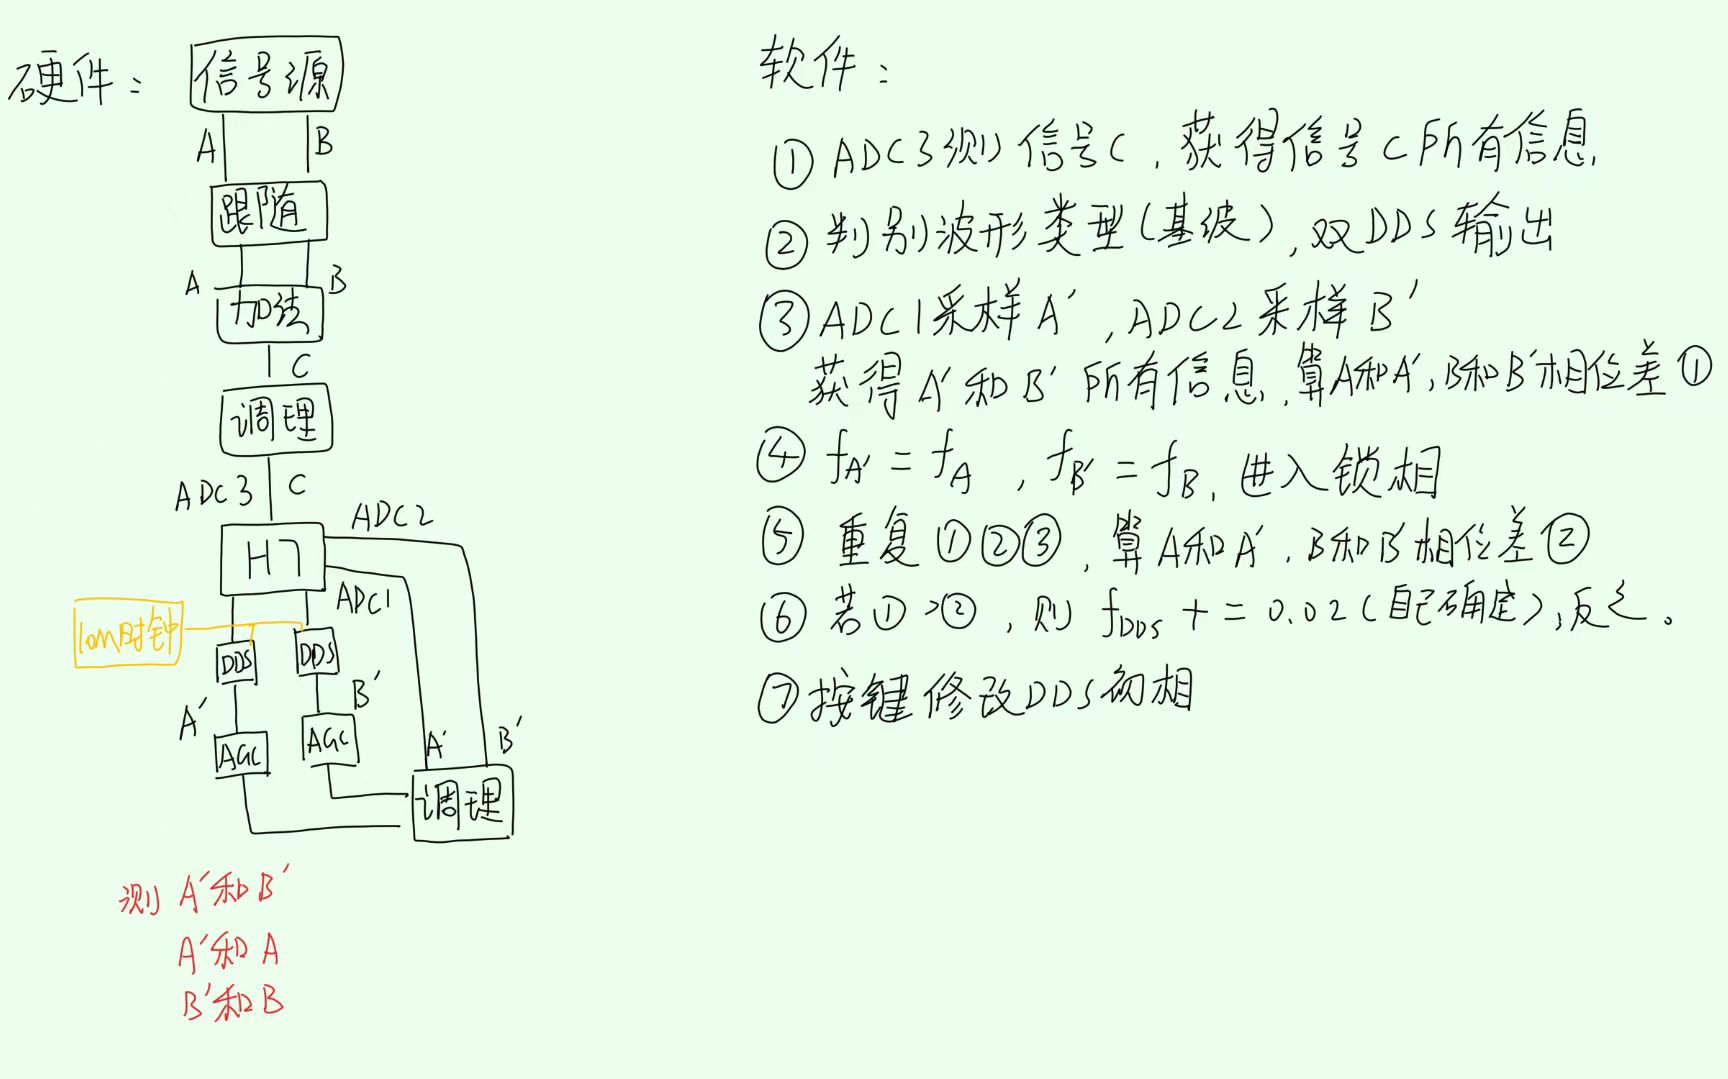 硬件：
信号源
A B
跟随
A B
加法
C
调理
ADC3 C
ADC2
H7
ADC1
10M时钟
DDS DDS
A′ B′
AGC AGC
A′ B′
调理
测 A′和B′
A′和A
B′和B
软件：
① ADC3测信号C，获得信号C所有信息，
② 判别波形类型(基波)，双DDS输出
③ ADC1采样A′，ADC2采样B′
获得A′和B′所有信息，算A和A′，B和B′相位差①
④ fA′ = fA，fB′ = fB，进入锁相
⑤ 重复①②③，算A和A′，B和B′相位差②
⑥ 若①>②，则 fDDS += 0.02(自己确定)，反之。
⑦ 按键修改DDS初相